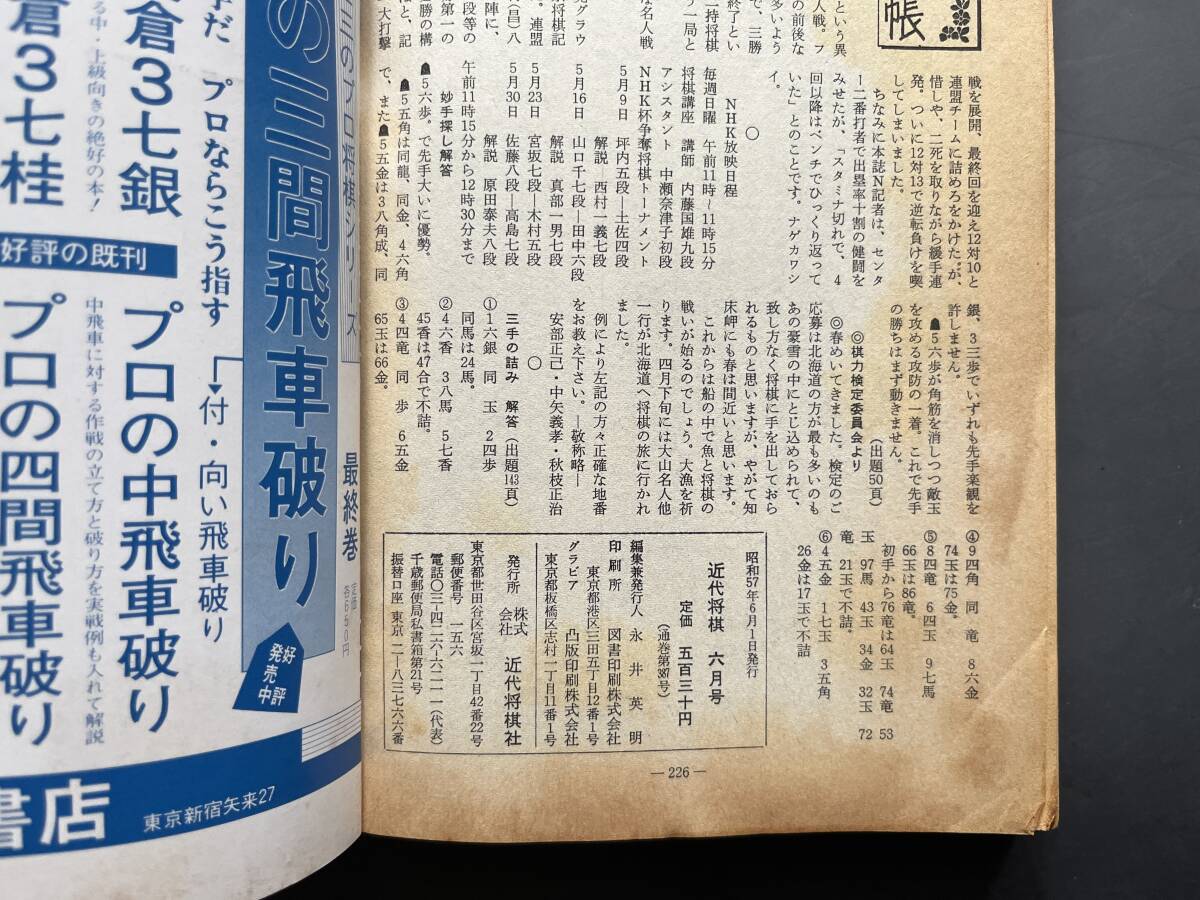 帳
という異
人戦。フ
の前後な
多いよう
で、三勝
終了とい
二持将棋
う一局と
な名人戦
発グラウ
将棋記
。連盟
(昌)八
陣に、
段等の
第一の
勝の構
と、記
大打撃
戦を展開、最終回を迎え12対10と
連盟チームに詰めろをかけた。が、
惜しや、二死を取りながら緩手連
発。ついに12対13で逆転負けを喫
してしまいました。
ちなみに本誌N記者は、センタ
ー二番打者で出塁率十割の健闘を
みせたが、「スタミナ切れで、4
回以降はベンチでひっくり返って
いた」とのことです。ナゲカワシ
イ。
○
NHK放映日程
毎週日曜 午前11時〜11時15分
将棋講座 講師 内藤国雄九段
アシスタント 中瀬奈津子初段
NHK杯争奪将棋トーナメント
5月9日 坪内五段―土佐四段
解説―西村一義七段
5月16日 山口千七段―田中六段
解説 真部一男七段
5月23日 宮坂七段―木村五段
5月30日 佐藤八段―高島七段
解説 原田泰夫八段
午前11時15分から12時30分まで
妙手探し解答
☗5六歩。で先手大いに優勢。
☗5五角は同龍、同金、4六角
で、また☗5五金は3八角成、同
銀、3三歩でいずれも先手楽観を
許しません。
☗5六歩が角筋を消しつつ敵玉
を攻める攻防の一着。これで先手
の勝ちはまず動きません。
(出題50頁)
◎棋力検定委員会より
◎春めいてきました。検定のご
応募は北海道の方が最も多いのも
あの豪雪の中にとじ込められて、
致し方なく将棋に手を出しておら
れるものと思いますが、やがて知
床岬にも春は間近いと思います。
これからは船の中で魚と将棋の
戦いが始るのでしょう。大漁を祈
ります。四月下旬には大山名人他
一行が北海道へ将棋の旅に行かれ
ました。
例により左記の方々正確な地番
をお教え下さい。―敬称略―
安部正己・中矢義孝・秋枝正治
○
三手の詰み 解答(出題143頁)
①1六銀 同 玉 2四歩
同馬は24馬。
②4六香 3八馬 5七香
45香は47合で不詰。
③4四竜 同 歩 6五金
65玉は66金。
④9四角 同 竜 8六金
74玉は75金。
⑤8四竜 6四玉 9七馬
66玉は86竜。
初手から76竜は64玉 74竜 53
玉 97馬 43玉 34金 32玉 72
竜 21玉で不詰。
⑥4五金 1七玉 3五角
26金は17玉で不詰
昭和57年6月1日発行
近代将棋 六月号
(通巻第387号)
定価 五百三十円
編集兼発行人 永井英明
印刷所 図書印刷株式会社
東京都港区三田五丁目12番1号
グラビア 凸版印刷株式会社
東京都板橋区志村一丁目11番1号
発行所 株式会社 近代将棋社
東京都世田谷区宮坂一丁目42番22号
郵便番号 一五六
電話〇三―四二六―六二一一(代表)
千歳郵便局私書箱第21号
振替口座 東京 二―八三七六六番
―226―
三のプロ将棋シリーズ
の三間飛車破り
最終巻
定価各650円
┌▼付・向い飛車破り
好評発売中
だ プロならこう指す
倉3七銀
る中・上級向きの絶好の本!
倉3七桂
好評の既刊
プロの中飛車破り
中飛車に対する作戦の立て方と破り方を実戦例も入れて解説
プロの四間飛車破り
書店
東京新宿矢来27